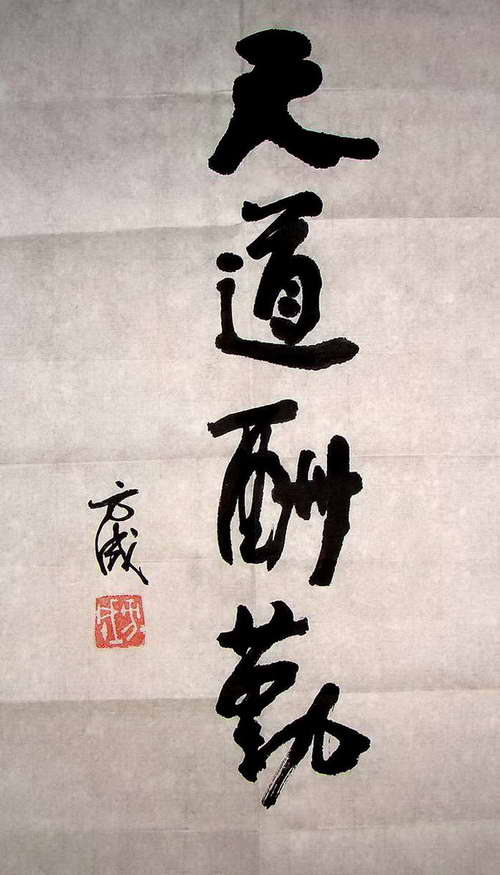 天道酬勤
方成